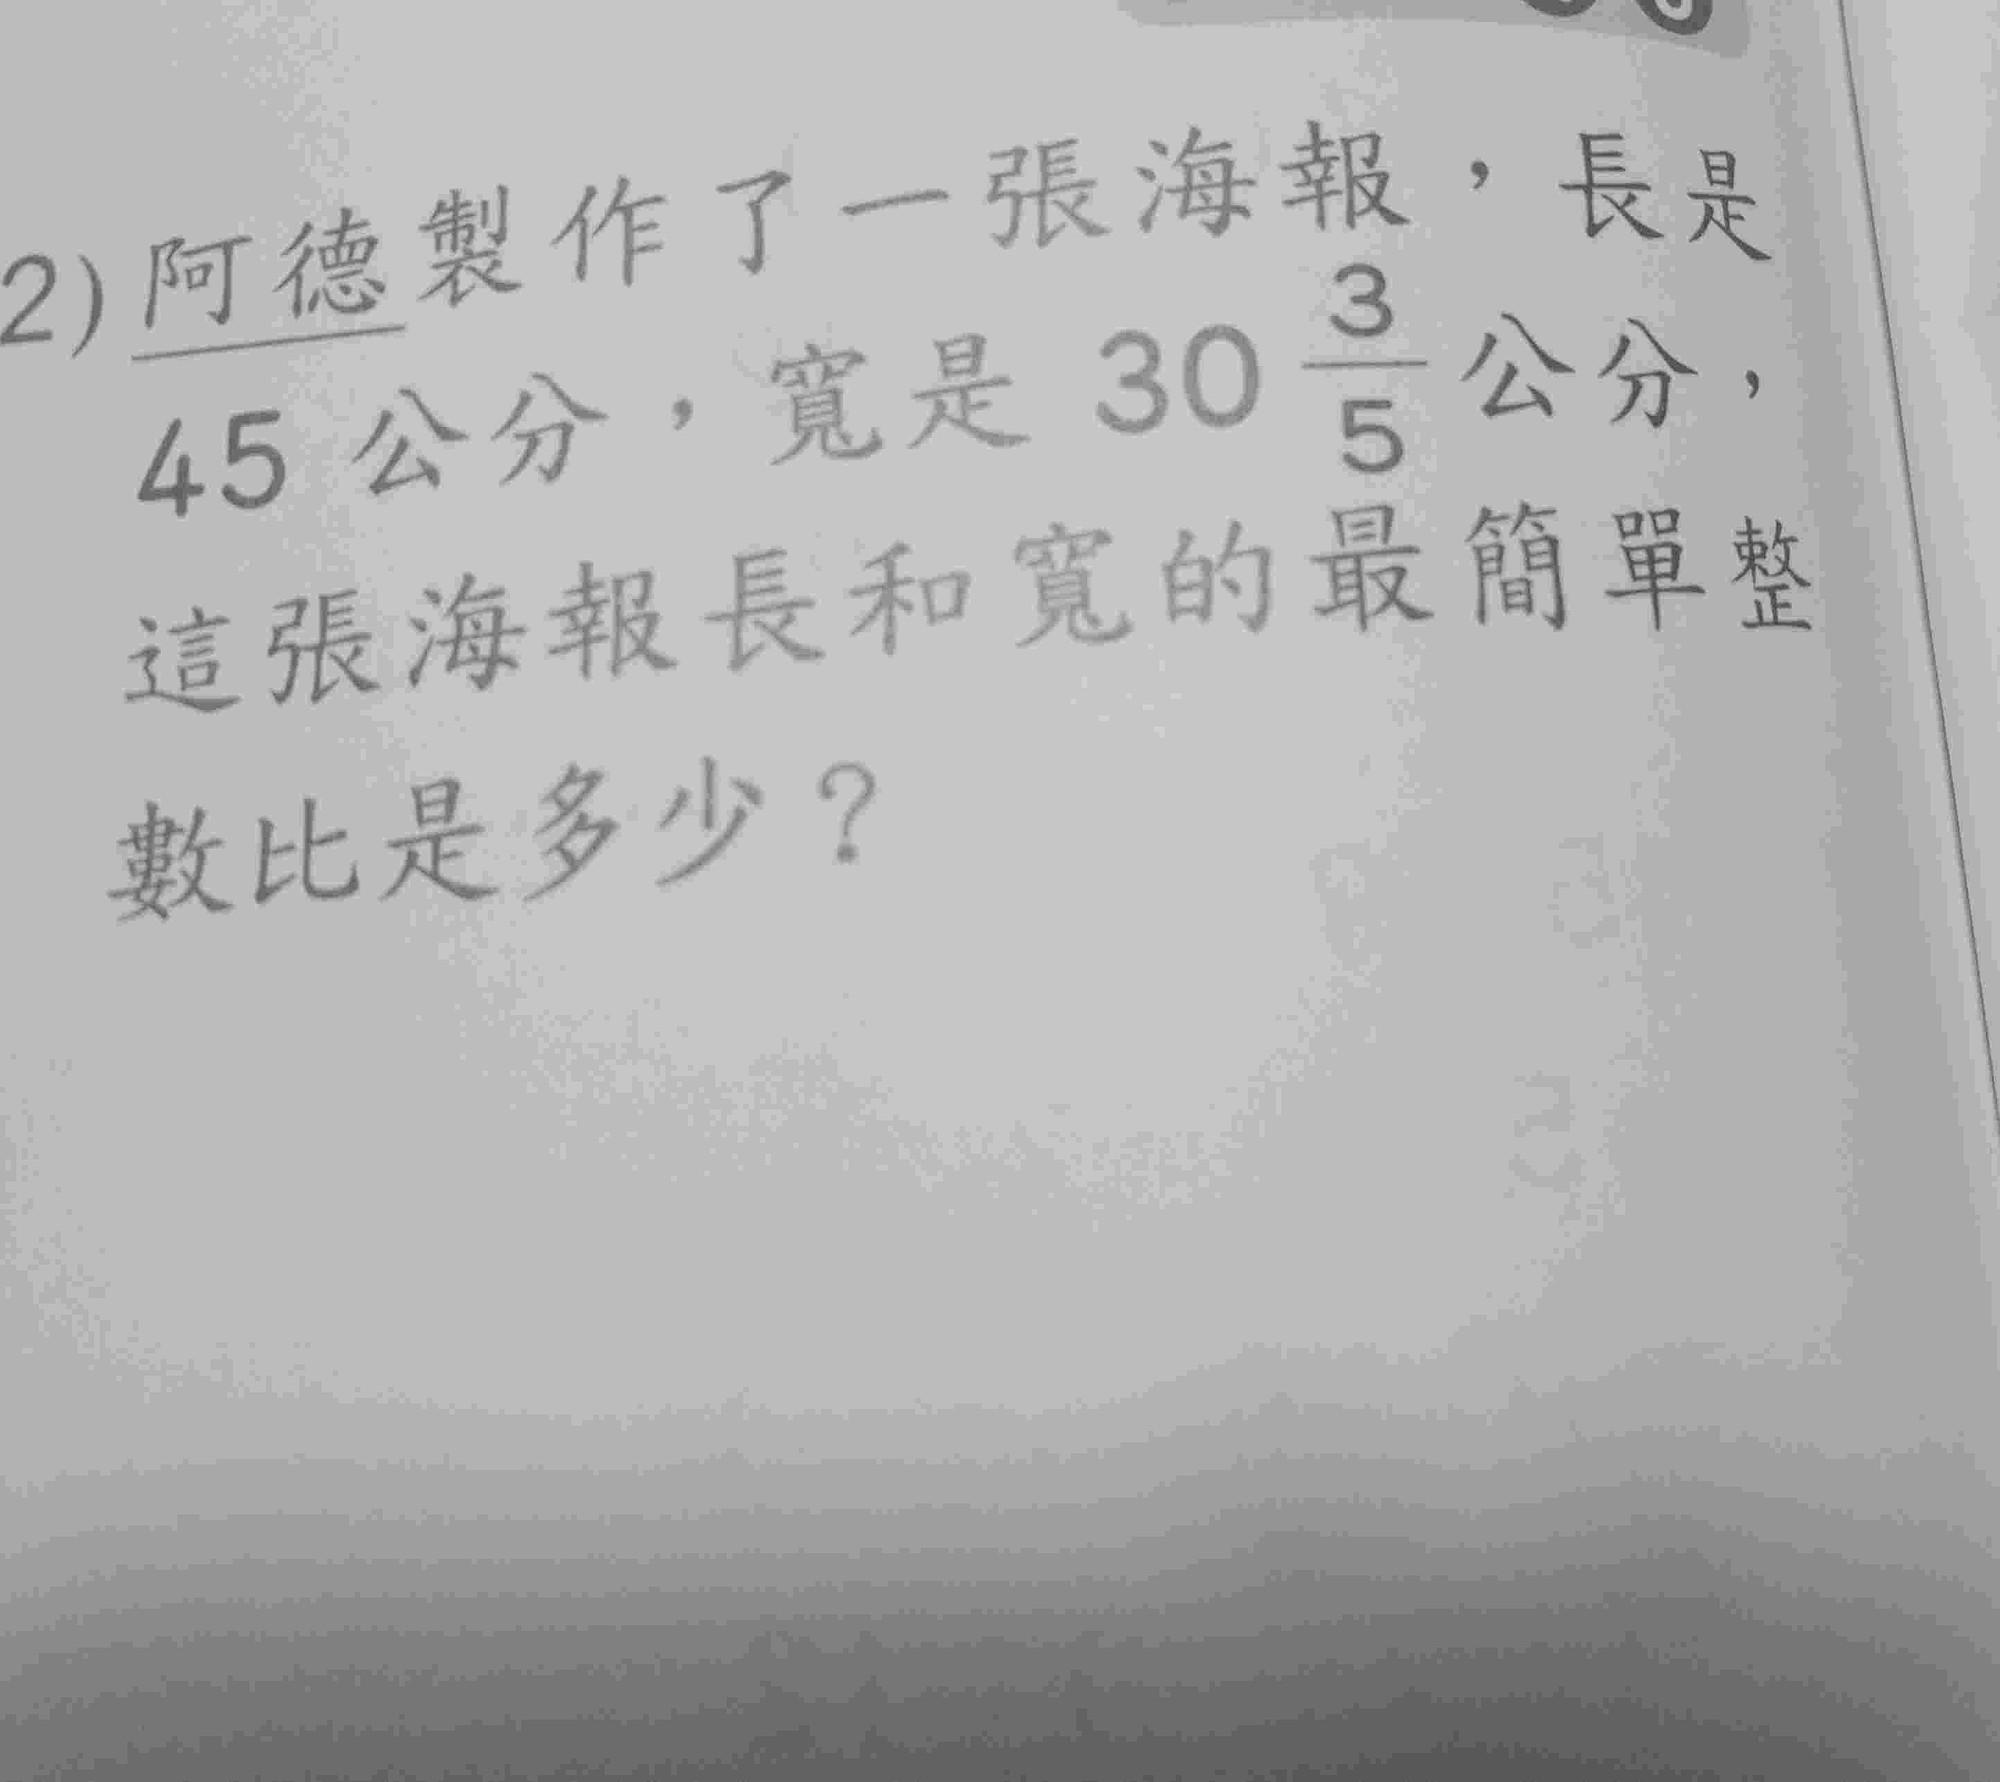 2) 阿德製作了一張海報，長是
45 公分，寬是 30 3/5 公分，
這張海報長和寬的最簡單整
數比是多少？